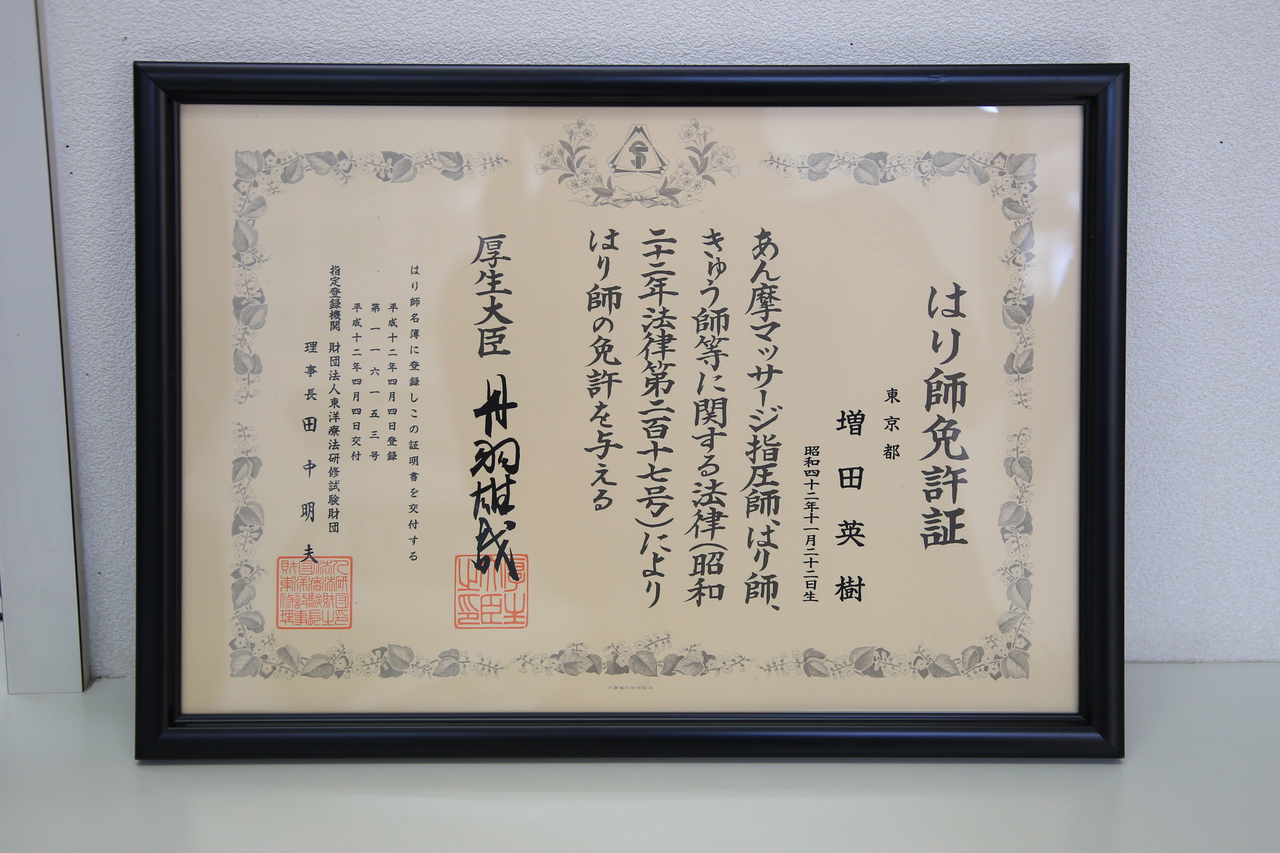 はり師免許証
東京都
増田英樹
昭和四十二年十一月二十二日生
あん摩マッサージ指圧師、はり師、
きゅう師等に関する法律(昭和
二十二年法律第二百十七号)により
はり師の免許を与える
厚生大臣 丹羽雄哉
はり師名簿に登録しこの証明書を交付する
平成十二年四月四日登録
第一一六一五三号
平成十二年四月四日交付
指定登録機関 財団法人東洋療法研修試験財団
理事長 田中明夫
厚生大臣之印